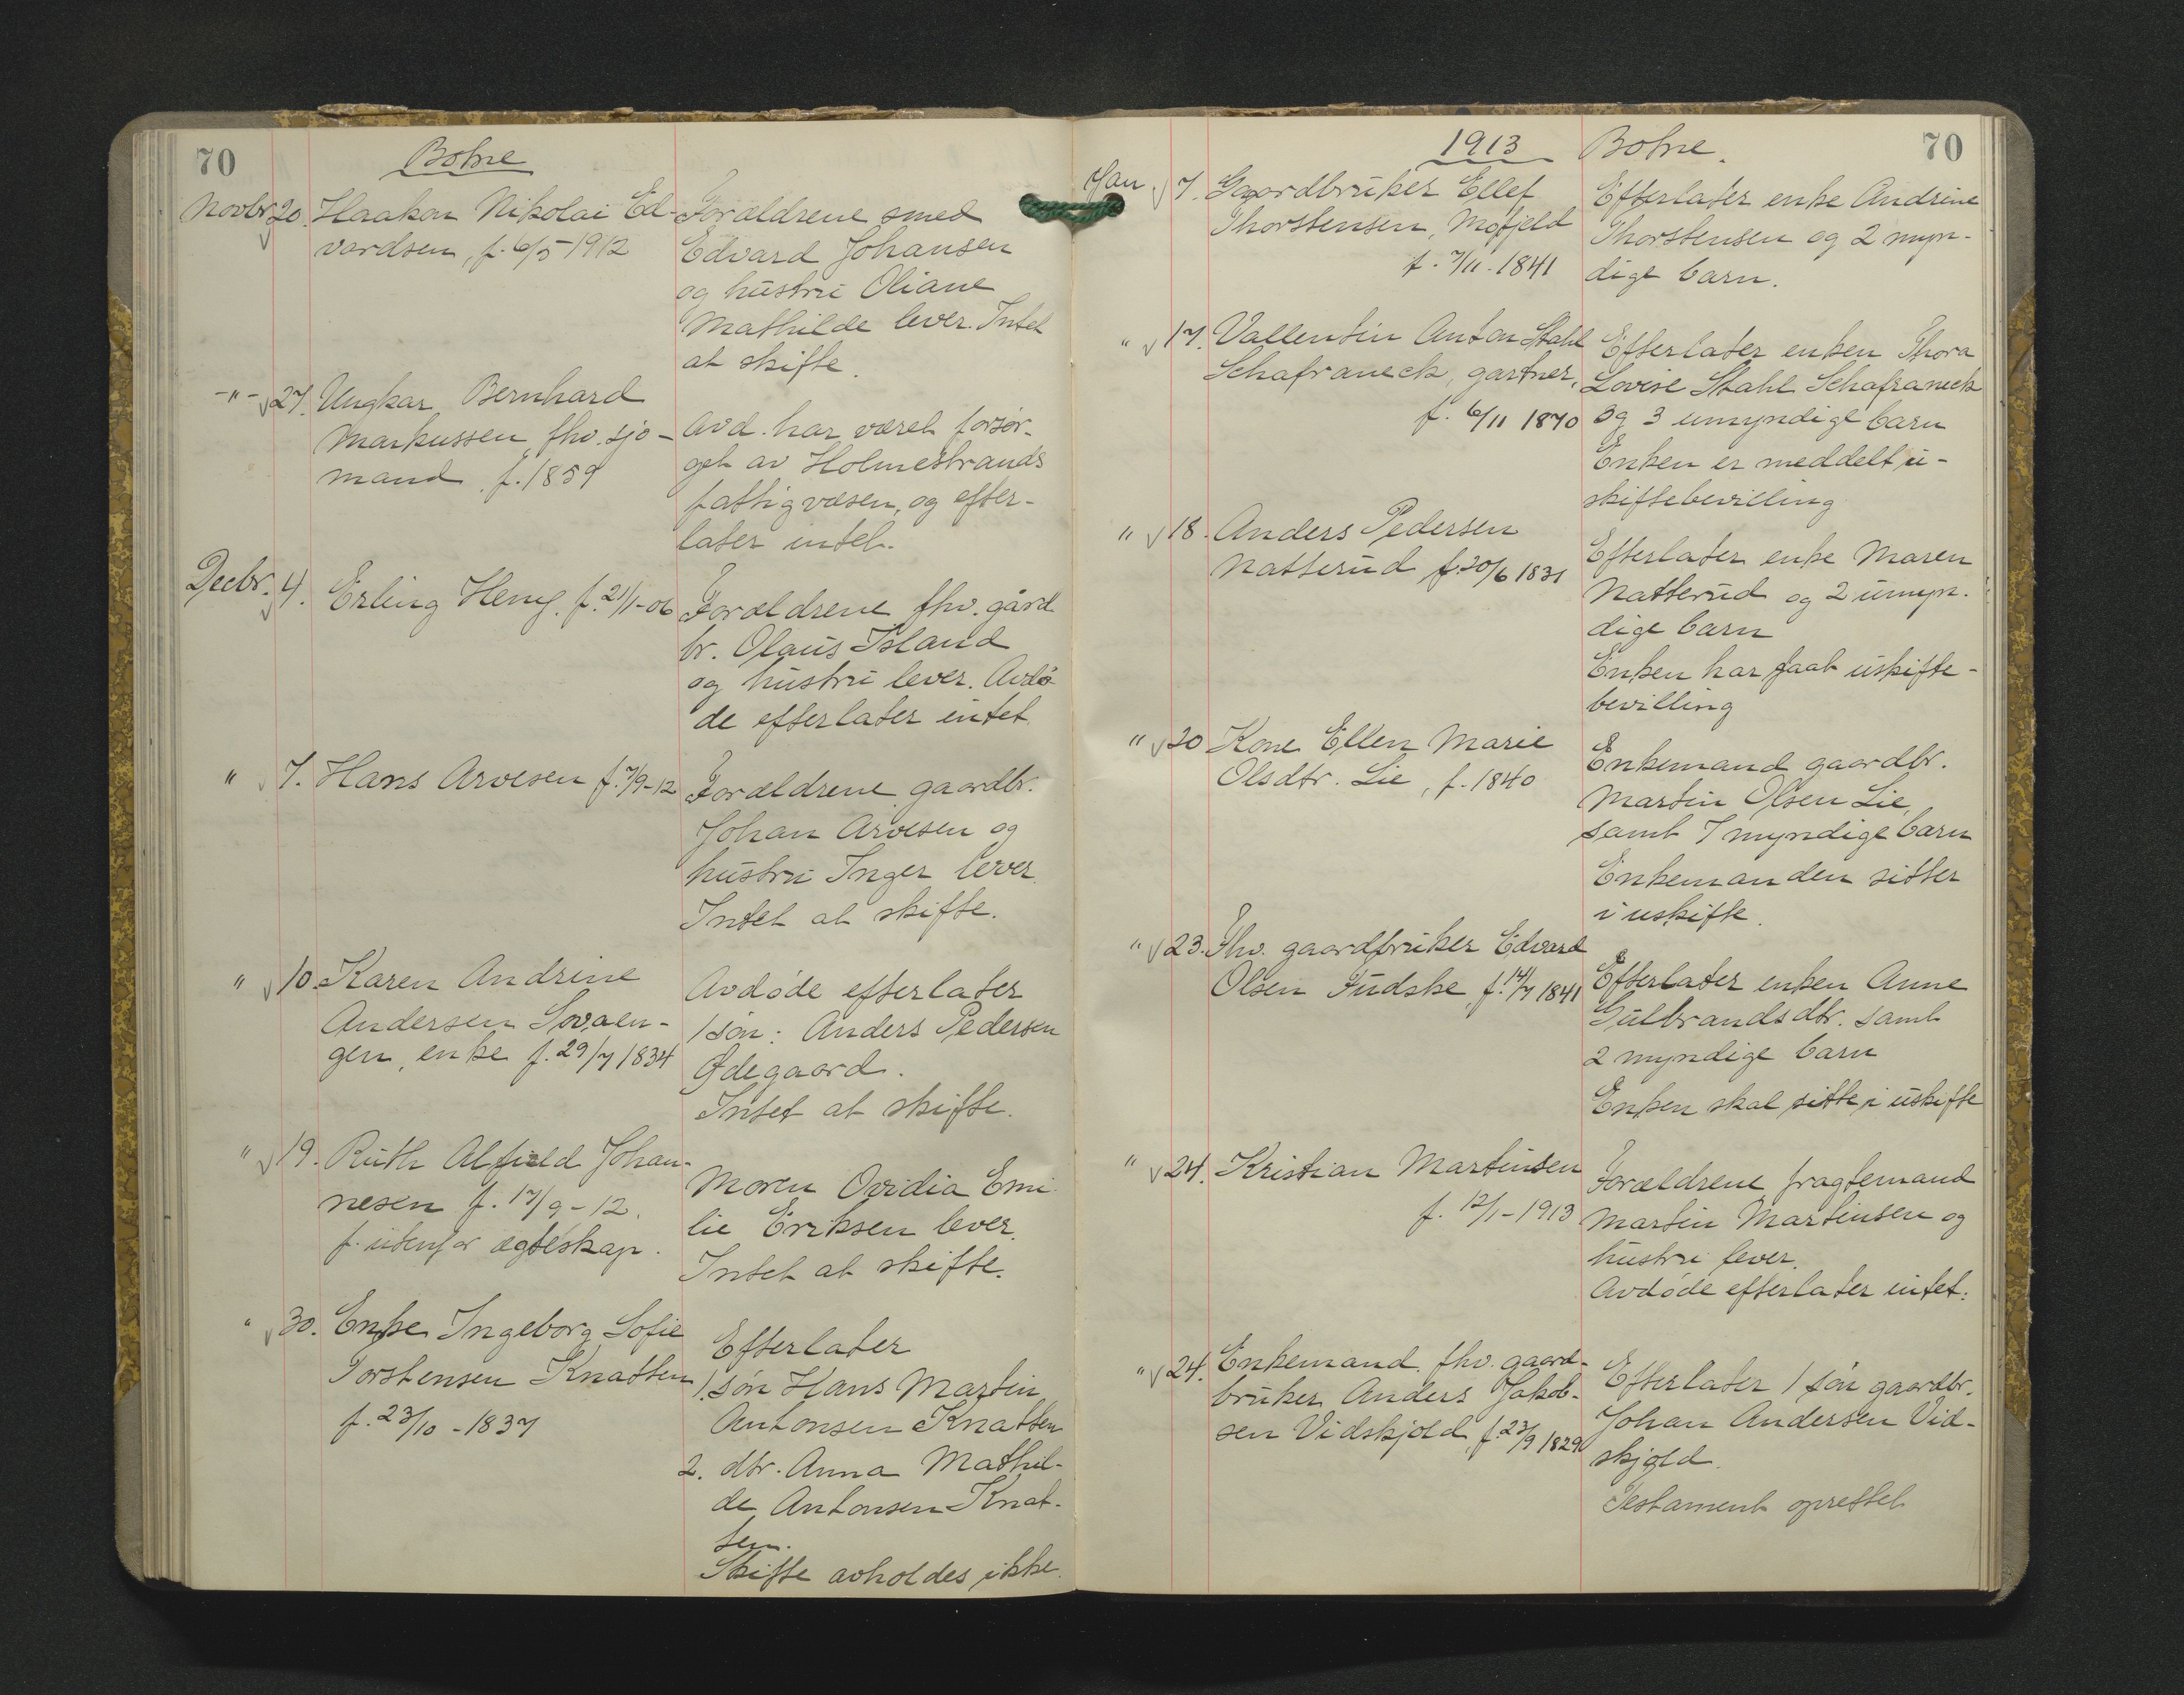 70
Botne
Novbr. 20. Haakon Nikolai Ed-
vardsen, f. 6/5-1912
Forældrene smed
Edvard Johansen
og hustru Oliane
Mathilde lever. Intet
at skifte.
-"- 27. Ungkar Bernhard
Markussen, fhv. sjø-
mand f. 1859
Avd. har været forsør-
get av Holmestrands
fattigvæsen, og efter-
later intet.
Decbr. 4. Erling Heng. f. 21/1-06
Forældrene fhv. gård
br. Olaus Island
og hustru lever. Avdø-
de efterlater intet.
" 7. Hans Arvesen f. 7/9-12
Forældrene gaardbr.
Johan Arvesen og
hustru Inger lever
Intet at skifte.
" 10. Karen Andrine
Andersen Løvaen-
gen, enke f. 29/7 1834
Avdøde efterlater
1 søn: Anders Pedersen
Ødegaard.
Intet at skifte.
" 19. Ruth Alfield Johan-
nesen f. 17/9-12.
f. utenfor ægteskap.
Moren Ovidia Emi-
lie Eriksen lever.
Intet at skifte.
" 30. Enke Ingeborg Sofie
Torstensen Knatten
f. 23/10-1837
Efterlater
1. søn Hans Martin
Antonsen Knatten
2. dtr. Anna Mathil-
de Antonsen Knat-
ten.
Skifte avholdes ikke.
1913 Botne.
70
Jan. 7. Gaardbruker Ellef
Thorstensen, Mofjeld
f. 7/11-1841
Efterlater enke Andrine
Thorstensen og 2 myn-
dige barn.
" 17. Vallentin Anton Stahl
Schafraneck, gartner,
f. 6/11 1870
Efterlater enken Thora
Lovise Stahl Schafraneck
og 3 umyndige barn
Enken er meddelt u-
skiftebevilling
" 18. Anders Pedersen
Natterud f. 20/6 1831
Efterlater enke Maren
Natterud og 2 umyn-
dige barn
Enken har faat uskifte-
bevilling
" 20 Kone Ellen Marie
Olsdtr. Lie, f. 1840
Enkemand gaardbr.
Martin Olsen Lie,
samt 7 myndige barn
Enkemanden sitter
i uskifte.
" 23. Fhv. gaardbruker Edvard
Olsen Fudske, f. 14/7 1841
Efterlater enken Anne
Gulbrandsdtr. samt
2 myndige barn
Enken skal sitte i uskifte
" 24. Kristian Martinsen
f. 12/1-1913
Forældrene fragtemand
Martin Martinsen og
hustru lever.
Avdøde efterlater intet.
" 24. Enkemand fhv. gaard-
bruker Anders Jakob-
sen Vidskjold, f. 23/9 1829
Efterlater 1 søn gaardbr.
Johan Andersen Vid-
skjold.
Testament oprettet